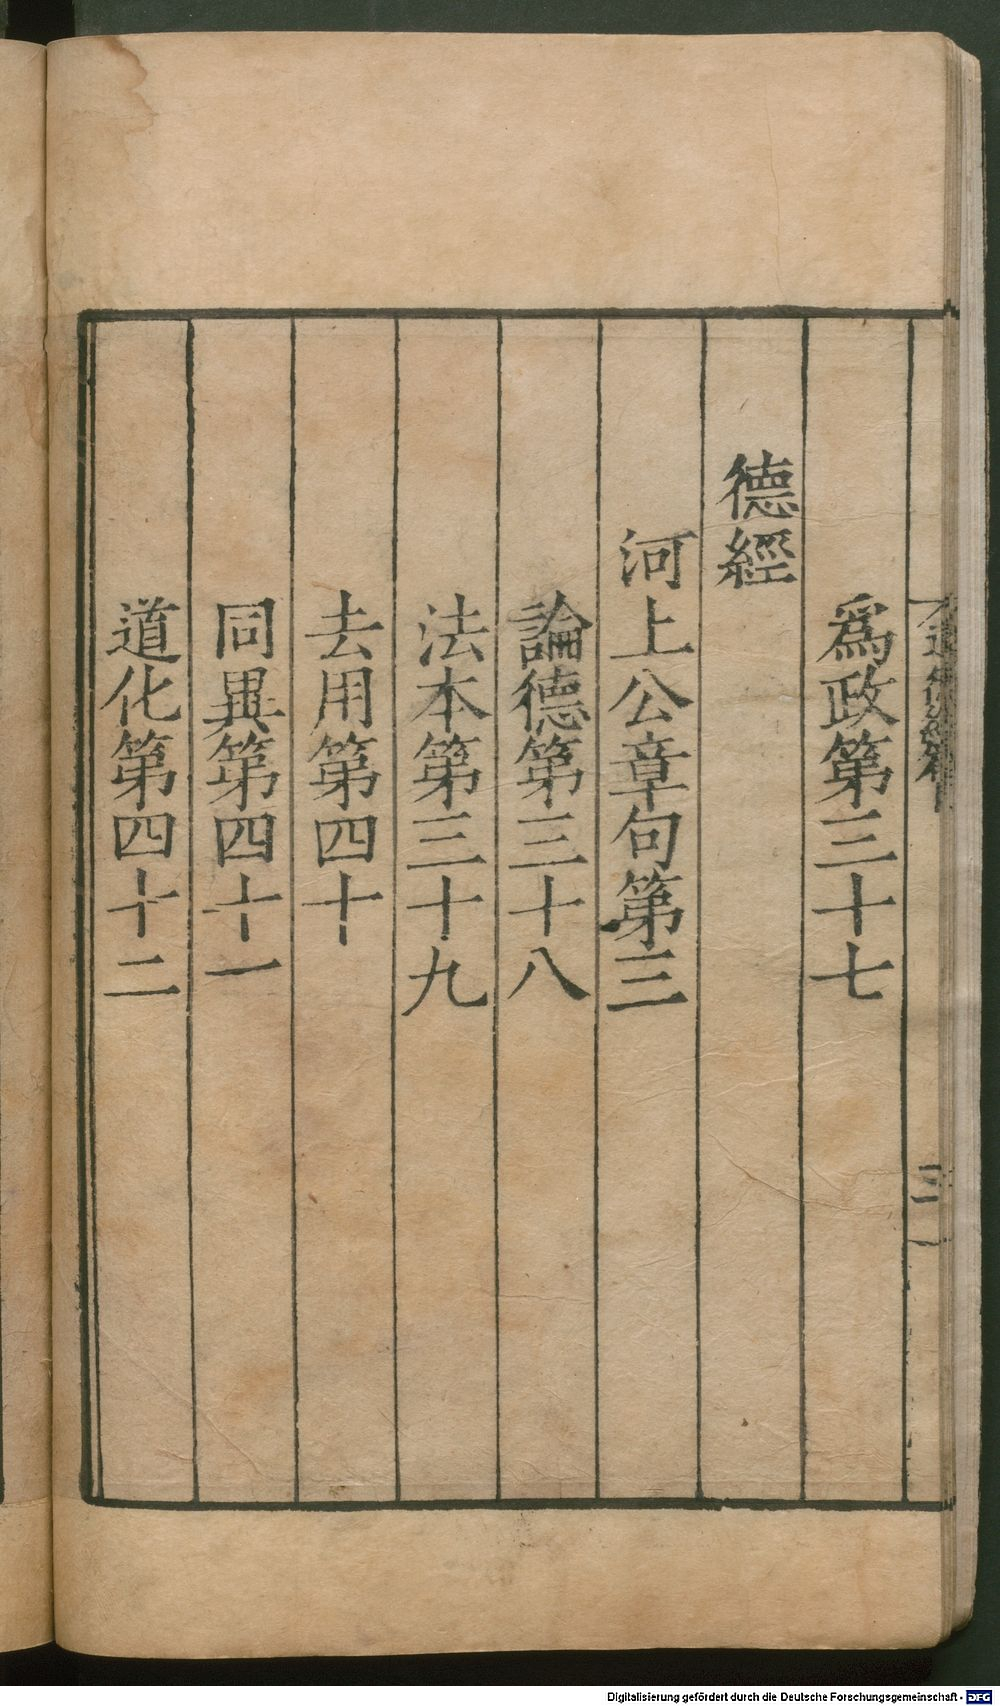 爲政第三十七
德經
河上公章句第三
論德第三十八
法本第三十九
去用第四十
同異第四十一
道化第四十二
三
Digitalisierung gefördert durch die Deutsche Forschungsgemeinschaft - DFG